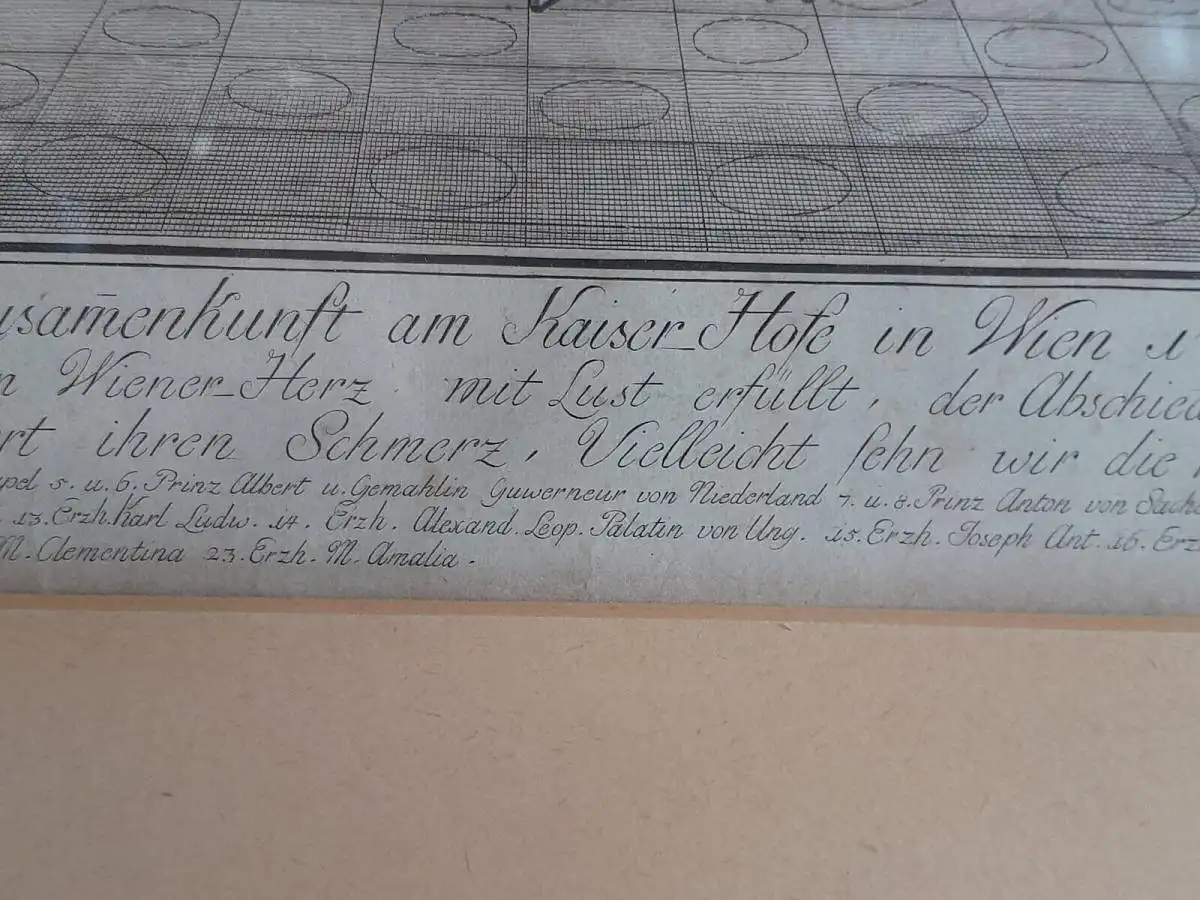 usam̄enkunft am Kaiser-Hofe in Wien
n Wiener-Herz mit Lust erfüllt, der Abschied
rt ihren Schmerz, Vielleicht sehn wir die
pel 5. u. 6. Prinz Albert u. Gemahlin Guwerneur von Niederland 7. u. 8. Prinz Anton von Sachs
13. Erzh. Karl Ludw. 14. Erzh. Alexand. Leop. Palatin von Ung. 15. Erzh. Joseph Ant. 16. Erz
M. Clementina 23. Erzh. M. Amalia.